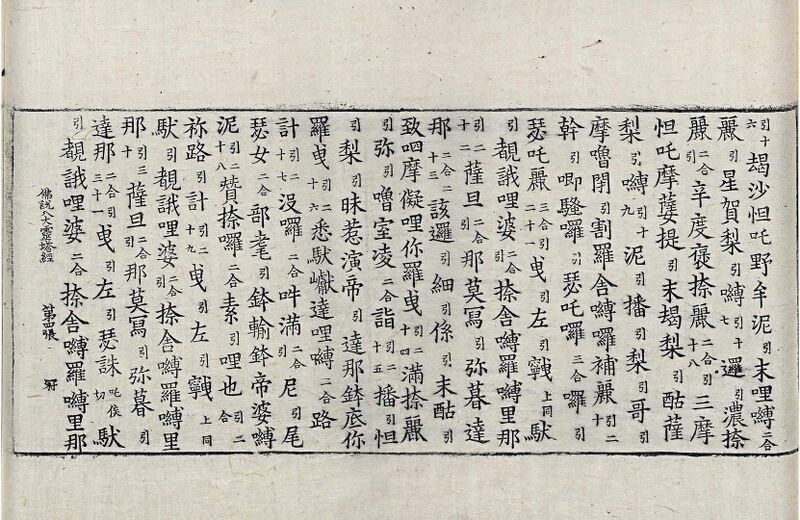 引十六朅沙怛吒野牟泥引末哩嚩二合
麗引星賀梨引嚩七十邏引濃捺
麗二合辛度褒捺麗二合引十八三摩
怛吒摩薩提引末朅梨引酤薩
梨引嚩九引十泥引播引梨引哥引
摩嚕閉引割羅舍嚩囉補麗十引二
幹引唧騷囉引瑟吒囉三合囉引
瑟吒麗三合引二十一曳引左䩕上同馱
引覩誐哩婆二合捺舍嚩羅嚩里那
引二十二薩旦引二合那莫寫引弥暮達
那二合十三該邏引細引係引末酤引
致呬摩儗哩你羅曳十四滿捺麗
引弥引嚕室凌二合詣引二十五播引怛
引梨引昧惹演帝引達那鉢底你
羅曳引十六悉馱巘達哩嚩二合路
計引二十七没囉二合吽滿二合尼引尾
瑟女二合部耄引鉢輸鉢帝婆嚩
泥引二十八贊捺囉二合素引哩也引二合
祢路引計引二十九曳引左引䩕上同
馱引覩誐哩婆引捺舍嚩羅嚩里
那引三十薩旦引二合那莫寫引弥暮引
達那二合引三十一曳引左引瑟誅吒侯切馱
引覩誐哩婆二合捺舍嚩羅嚩里那
佛說八大靈塔經 第四張